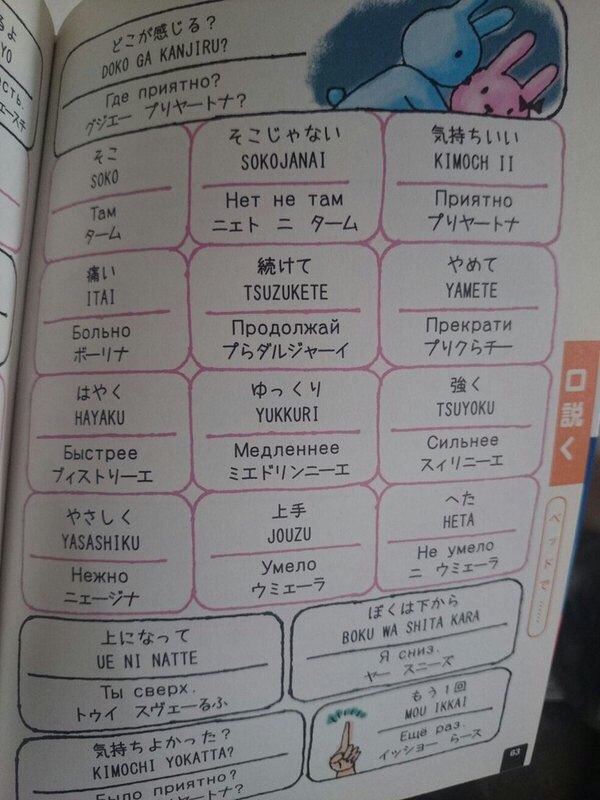 どこが感じる?
DOKO GA KANJIRU?
Где приятно?
グジエー プリヤートナ?
そこ
SOKO
Там
ターム
そこじゃない
SOKOJANAI
Нет не там
ニェト ニ ターム
気持ちいい
KIMOCH II
Приятно
プリヤートナ
痛い
ITAI
Больно
ボーリナ
続けて
TSUZUKETE
Продолжай
プらダルジャーイ
やめて
YAMETE
Прекрати
プリクらチー
はやく
HAYAKU
Быстрее
ブィストリーエ
ゆっくり
YUKKURI
Медленнее
ミエドリンニーエ
強く
TSUYOKU
Сильнее
スィリニーエ
やさしく
YASASHIKU
Нежно
ニェージナ
上手
JOUZU
Умело
ウミェーラ
へた
HETA
Не умело
ニ ウミェーラ
上になって
UE NI NATTE
Ты сверх.
トゥイ スヴェーるふ
ぼくは下から
BOKU WA SHITA KARA
Я сниз.
ヤー スニーズ
気持ちよかった?
KIMOCHI YOKATTA?
Было приятно?
もう1回
MOU IKKAI
Ещё раз.
イッショー らース
口説く
ベッドで……
63